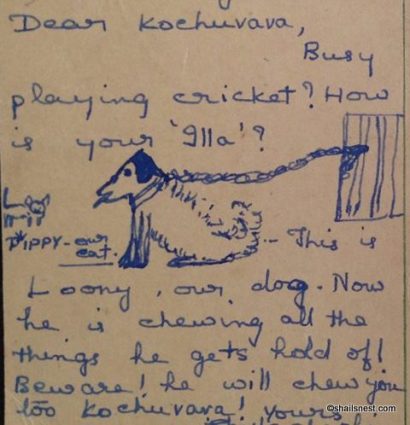 Dear Kochuvava,
Busy
playing cricket? How
is your 'Illa'?
PIPPY - our
cat.
- This is
Loony, our dog. Now
he is chewing all the
things he gets hold of!
Beware! he will chew you
too Kochuvava! yours
©shailsnest.com